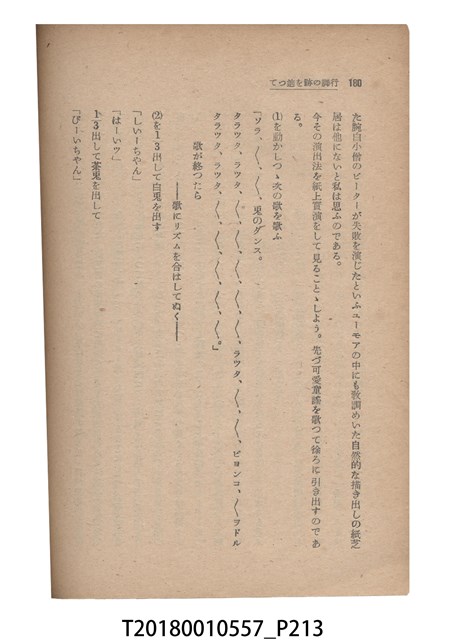 180 行脚の跡を追つて
た腕白小僧のピーターが失敗を演じたといふユーモアの中にも教訓めいた自然的な描き出しの紙芝
居は他にないと私は思ふのである。
今その演出法を紙上實演をして見ることゝしよう。先づ可愛童謠を歌つて徐ろに引き出すのであ
る。
(1)を動かしつゝ次の歌を歌ふ
「ソラ、〳〵、〳〵、兎のダンス。
タラツタ、ラツタ、〳〵、〳〵、〳〵、〳〵、ラツタ、〳〵、〳〵、ピヨンコ、〳〵ヲドル
タラツタ、ラツタ、〳〵、〳〵、〳〵、〳〵。」
歌が終つたら
――歌にリズムを合はしてぬく――
(2)を1/3出して白兎を出す
「しいーちやん」
「はーいッ」
1/3出して茶兎を出して
「ぴーいちやん」
T20180010557_P213